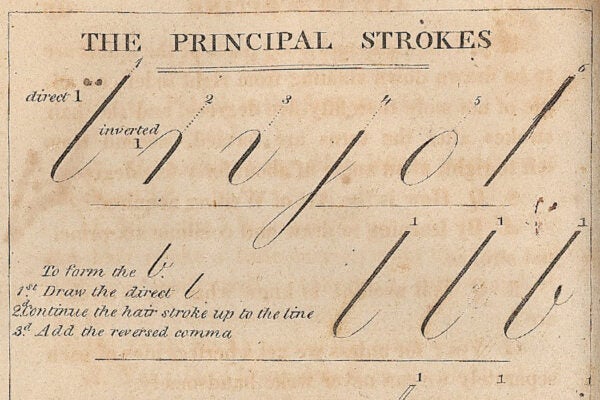 THE PRINCIPAL STROKES
1 2 3 4 5 6
direct 1
inverted
1
1 1 1
l l b
To form the b.
1st Draw the direct l
2d Continue the hair stroke up to the line
3d Add the reversed comma
1 1 1